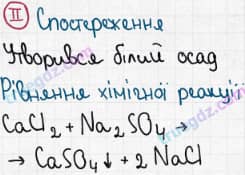 II Спостереження
Утворився білий осад
Рівняння хімічної реакції:
CaCl₂ + Na₂SO₄ →
→ CaSO₄↓ + 2 NaCl